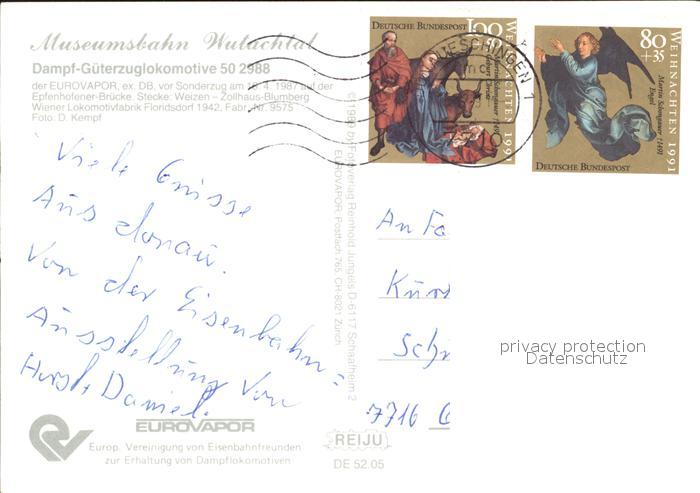 Museumsbahn Wutachtal
Dampf-Güterzuglokomotive 50 2988
der EUROVAPOR, ex. DB, vor Sonderzug am 4. 1987 auf der
Epfenhofener-Brücke. Stecke: Weizen – Zollhaus-Blumberg
Wiener Lokomotivfabrik Floridsdorf 1942, Fabr.-Nr. 9575
Foto: D. Kempf
Viele Grüsse
Aus donau.
Von der Eisenbahn =
Ausstellung von
Horst, Daniel.
EUROVAPOR
Europ. Vereinigung von Eisenbahnfreunden
zur Erhaltung von Dampflokomotiven
by Fotoverlag Reinhold Jungels D-6117 Schaafheim 2
EUROVAPOR, Postfach 765, CH-8021 Zürich
REIJU
DE 52.05
DEUTSCHE BUNDESPOST
WEIHNACHTEN 1991
Martin Schongauer (1490)
80
+35
WEIHNACHTEN 1991
Martin Schongauer (1490)
Engel
DEUTSCHE BUNDESPOST
ESCHINGEN 1
An Fa
Kur
Sch
7716 G
privacy protection
Datenschutz